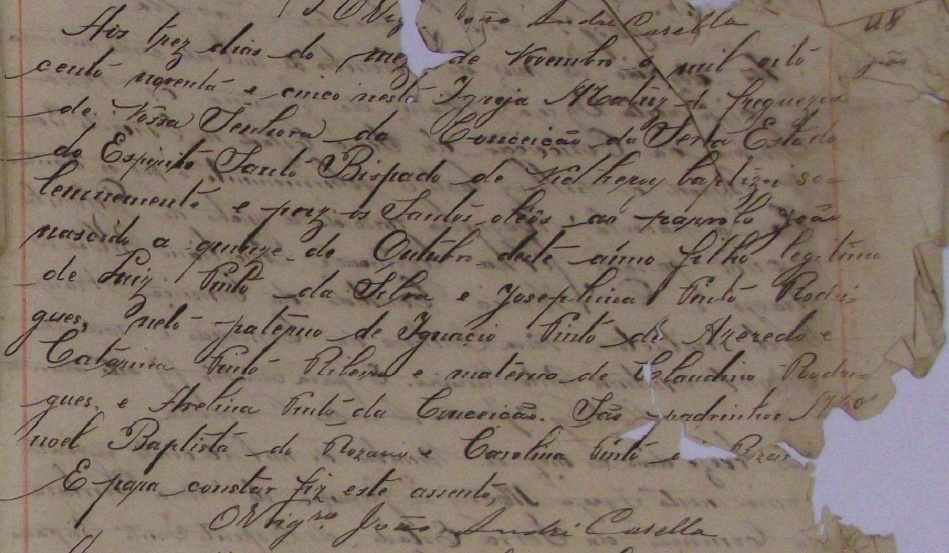 O Vig João André Casella
48
Aos trez dias do mez de Novembro de mil oito
João
cento noventa e cinco nesta Igreja Matriz da freguezia
de Nossa Senhora da Conceição da Serra Estado
do Espirito Santo Bispado de Nictheroy baptizei so-
lemnemente e puz os Santos oleos ao parvolo João
nascido a quinze de Outubro deste anno filho legitimo
de Luiz Pinto da Silva e Josephina Pinto Rodri-
gues, neto paterno de Ignacio Pinto de Azeredo e
Catarina Pinto Ribeiro e materno de Islaudino Rodri
gues, e Avelina Pinto da Conceição. São padrinhos Ma
noel Baptista do Rozario e Carolina Pinto
E para constar fiz este assento,
O Vigro João André Casella